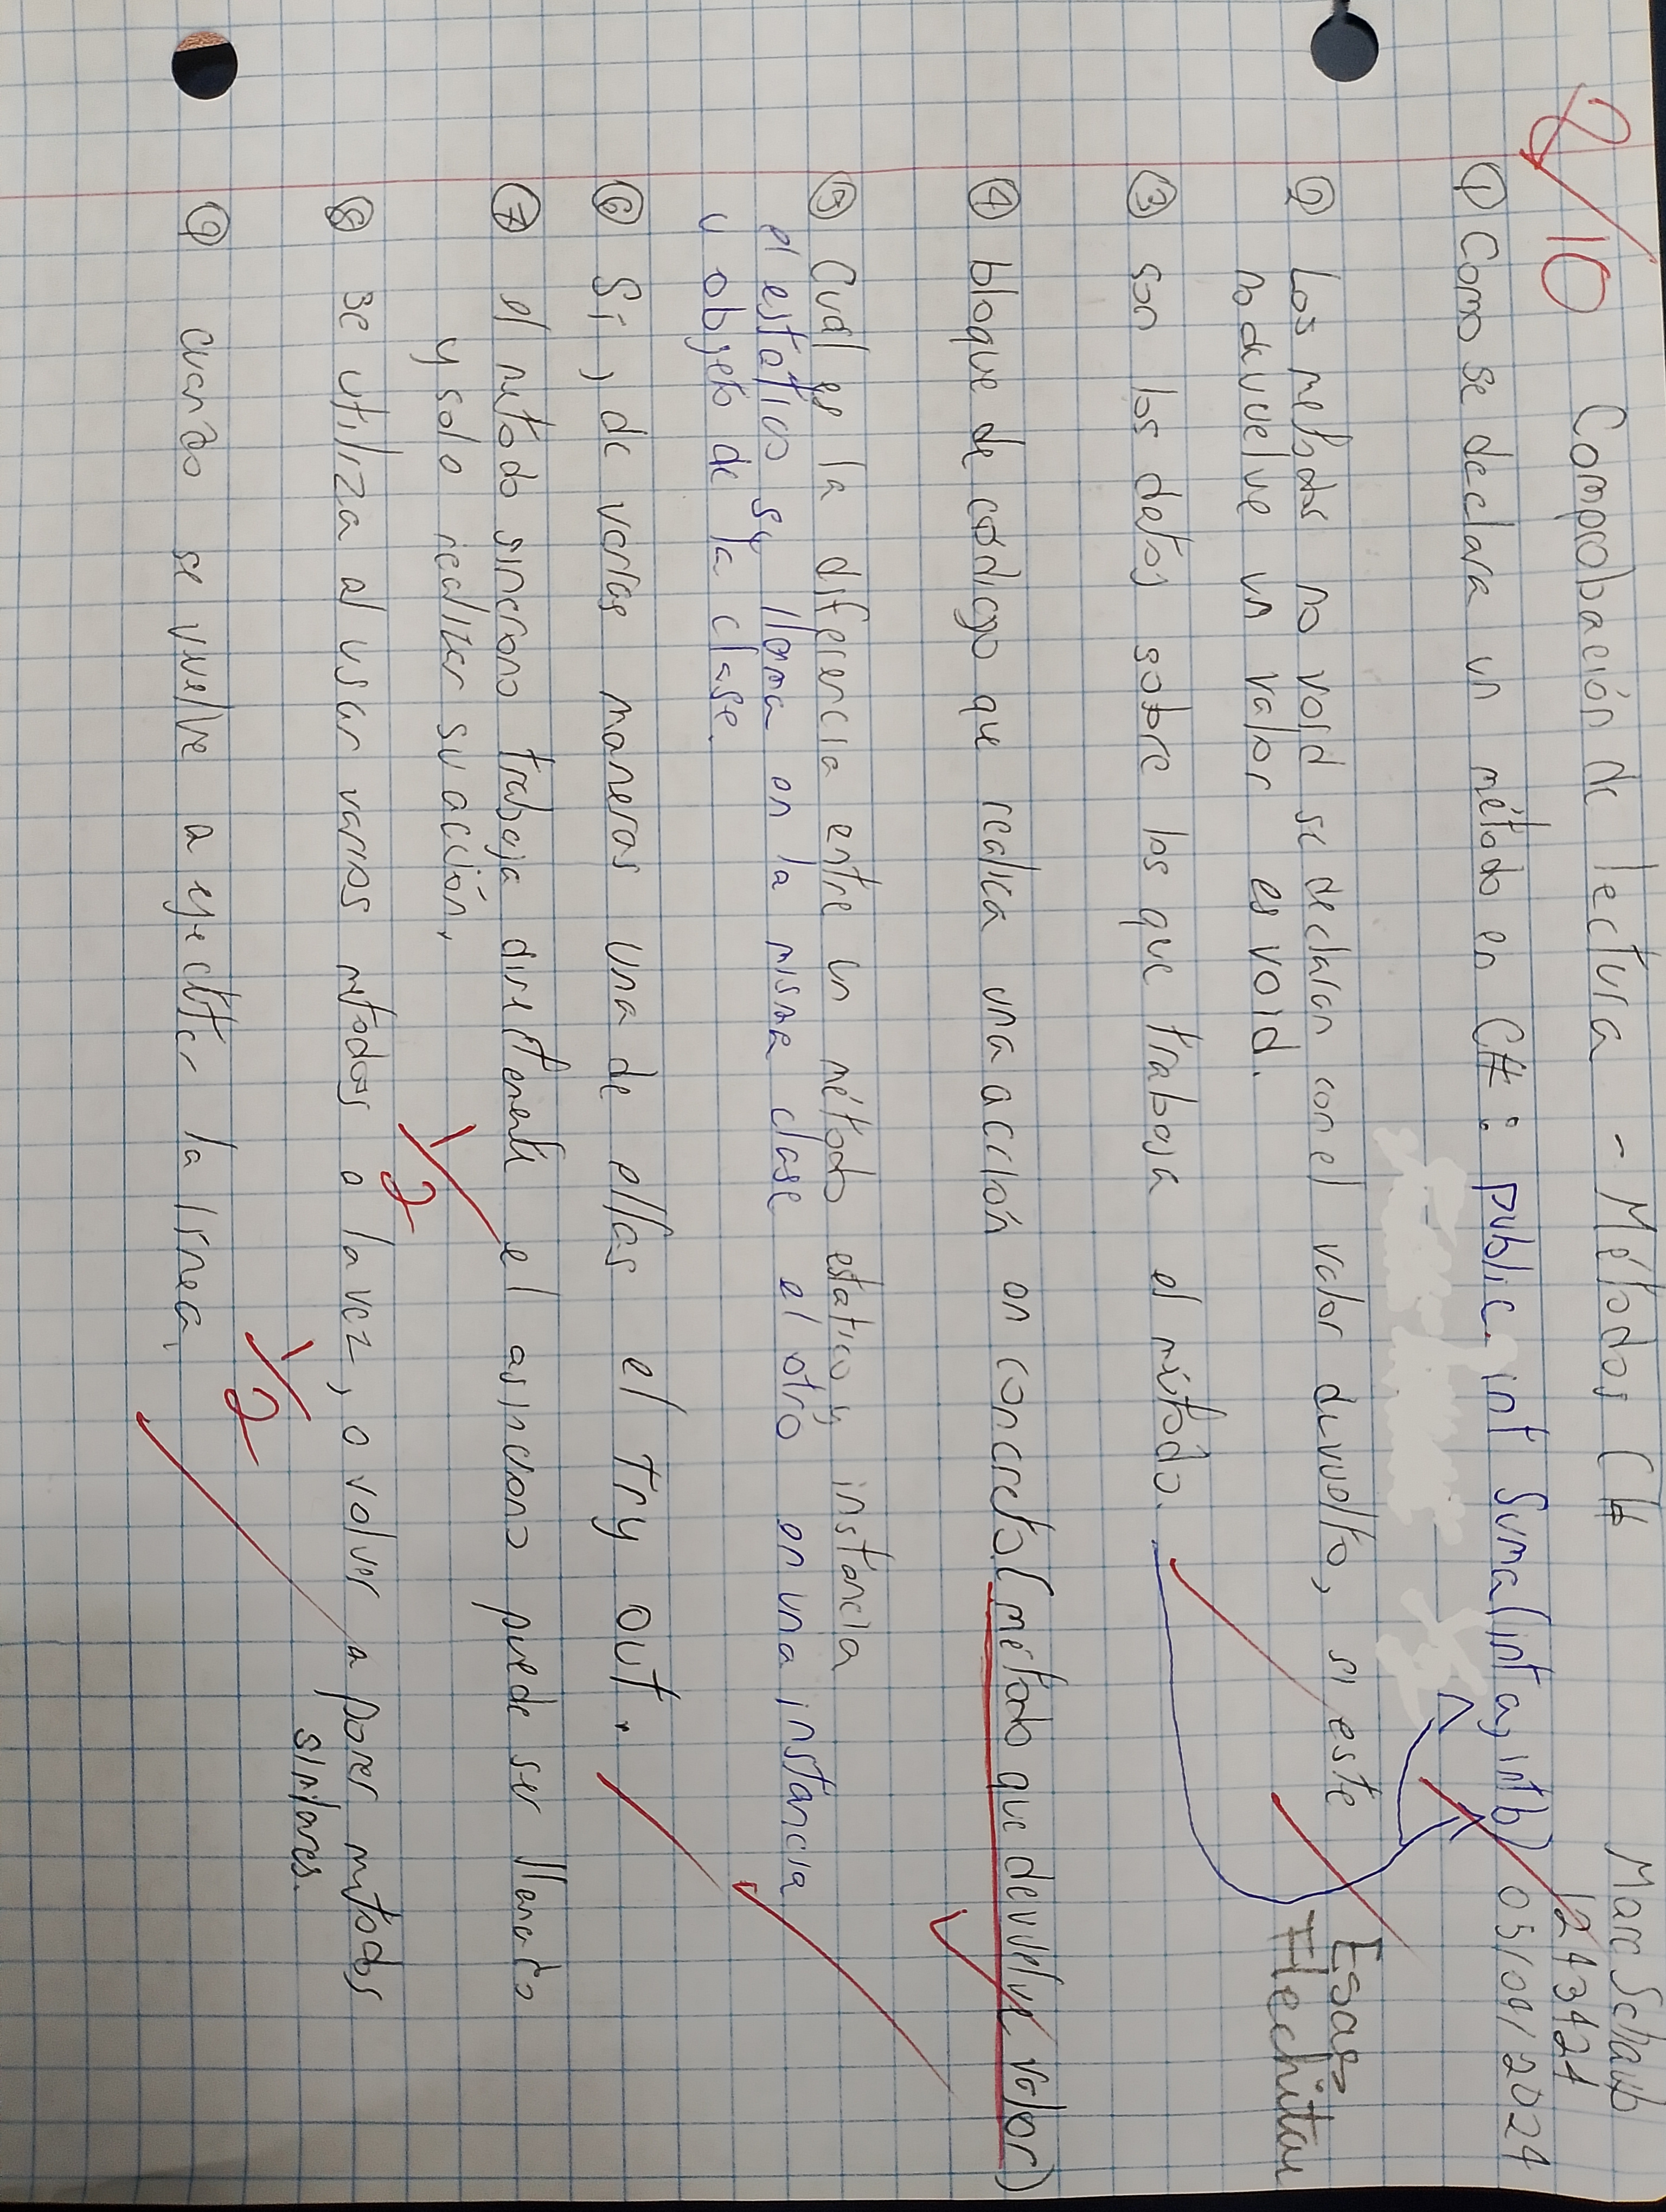 Marc Schaub
243421
8/10 Comprobación de lectura - Métodos C#
05/09/2024
① Como se declara un método en C#: public int Suma(int a, int b)
② Los metodos no void se declaran con el valor devuelto, si este
no devuelve un valor es void.
Esas
Flechitas
③ son los datos sobre los que trabaja el método.
④ bloque de código que realica una acción en concreto (método que devuelve valor)
⑤ Cual es la diferencia entre un método estatico y instancia
el estatico se llama en la misma clase el otro en una instancia
u objeto de la clase.
⑥ Si, de varias maneras una de ellas el try out.
⑦ el metodo sincrono trabaja directamente el asincrono puede ser llamado
y solo realizar su acción.
1/2
⑧ se utiliza al usar varios metodos a la vez, o volver a poner metodos
similares.
1/2
⑨ cuando se vuelve a ejecutar la línea.